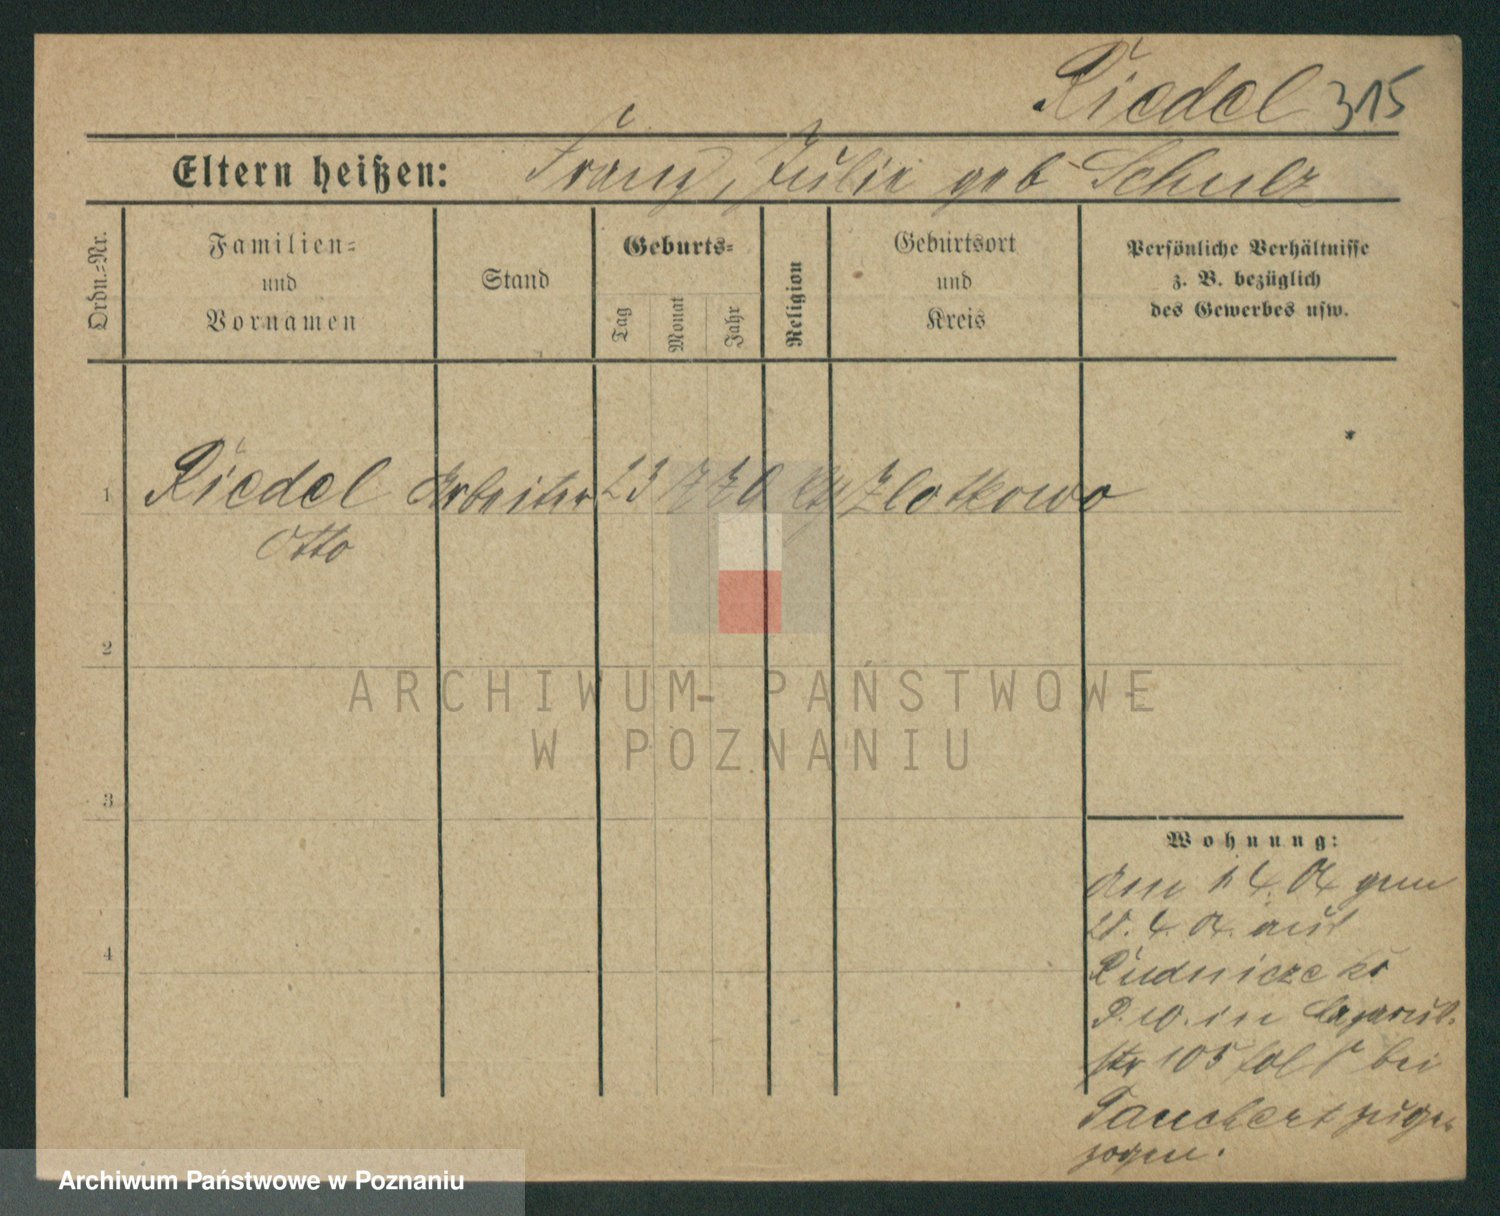 Riedel 315
Eltern heißen: Franz, Julie geb Schulz
Ordn.=Nr.
Familien=
und
Vornamen
Stand
Geburts=
Tag
Monat
Jahr
Religion
Geburtsort
und
Kreis
Persönliche Verhältnisse
z. B. bezüglich
des Gewerbes usw.
1
Riedel Arbeiter 23 Zlotkowo
Otto
2
ARCHIWUM PAŃSTWOWE
W POZNANIU
3
Wohnung:
am 1.4.04 gem
21.4.04. aus
Rudnicze Kr
P. W. in
str 105 bei
Tauchert zuge-
zogen.
4
Archiwum Państwowe w Poznaniu